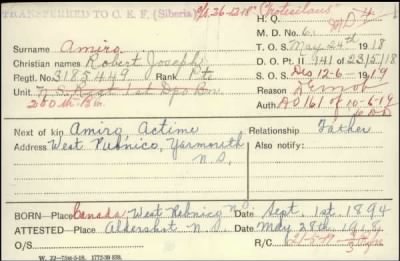 TRANSFERRED TO C. E. F. (Siberia) 26-12-18 "Protesilaus"
H. Q.
M. D. 6.
Surname Amiro
T. O. S. May 24th 1918
Christian names Robert Joseph
D. O. Pt. II 941 of 23/5/18
Regtl. No. 3185449 Rank Pte
S. O. S. Dis 12-6-1919
Unit N S Regt 1st Dpo Bn
Reason Demob
260th Bn
Auth. DO 161 of 10-6-19
6 DD
Next of kin Amiro Actime Relationship Father
Address West Pubnico, Yarmouth Also notify:
N.S.
BORN—Place Canada West Pubnico N.S. Date Sept. 1st. 1894
ATTESTED—Place Aldershot N.S. Date May 28th 1918
O/S R/C
W. 22-75m-5-18. 1772-39 839.